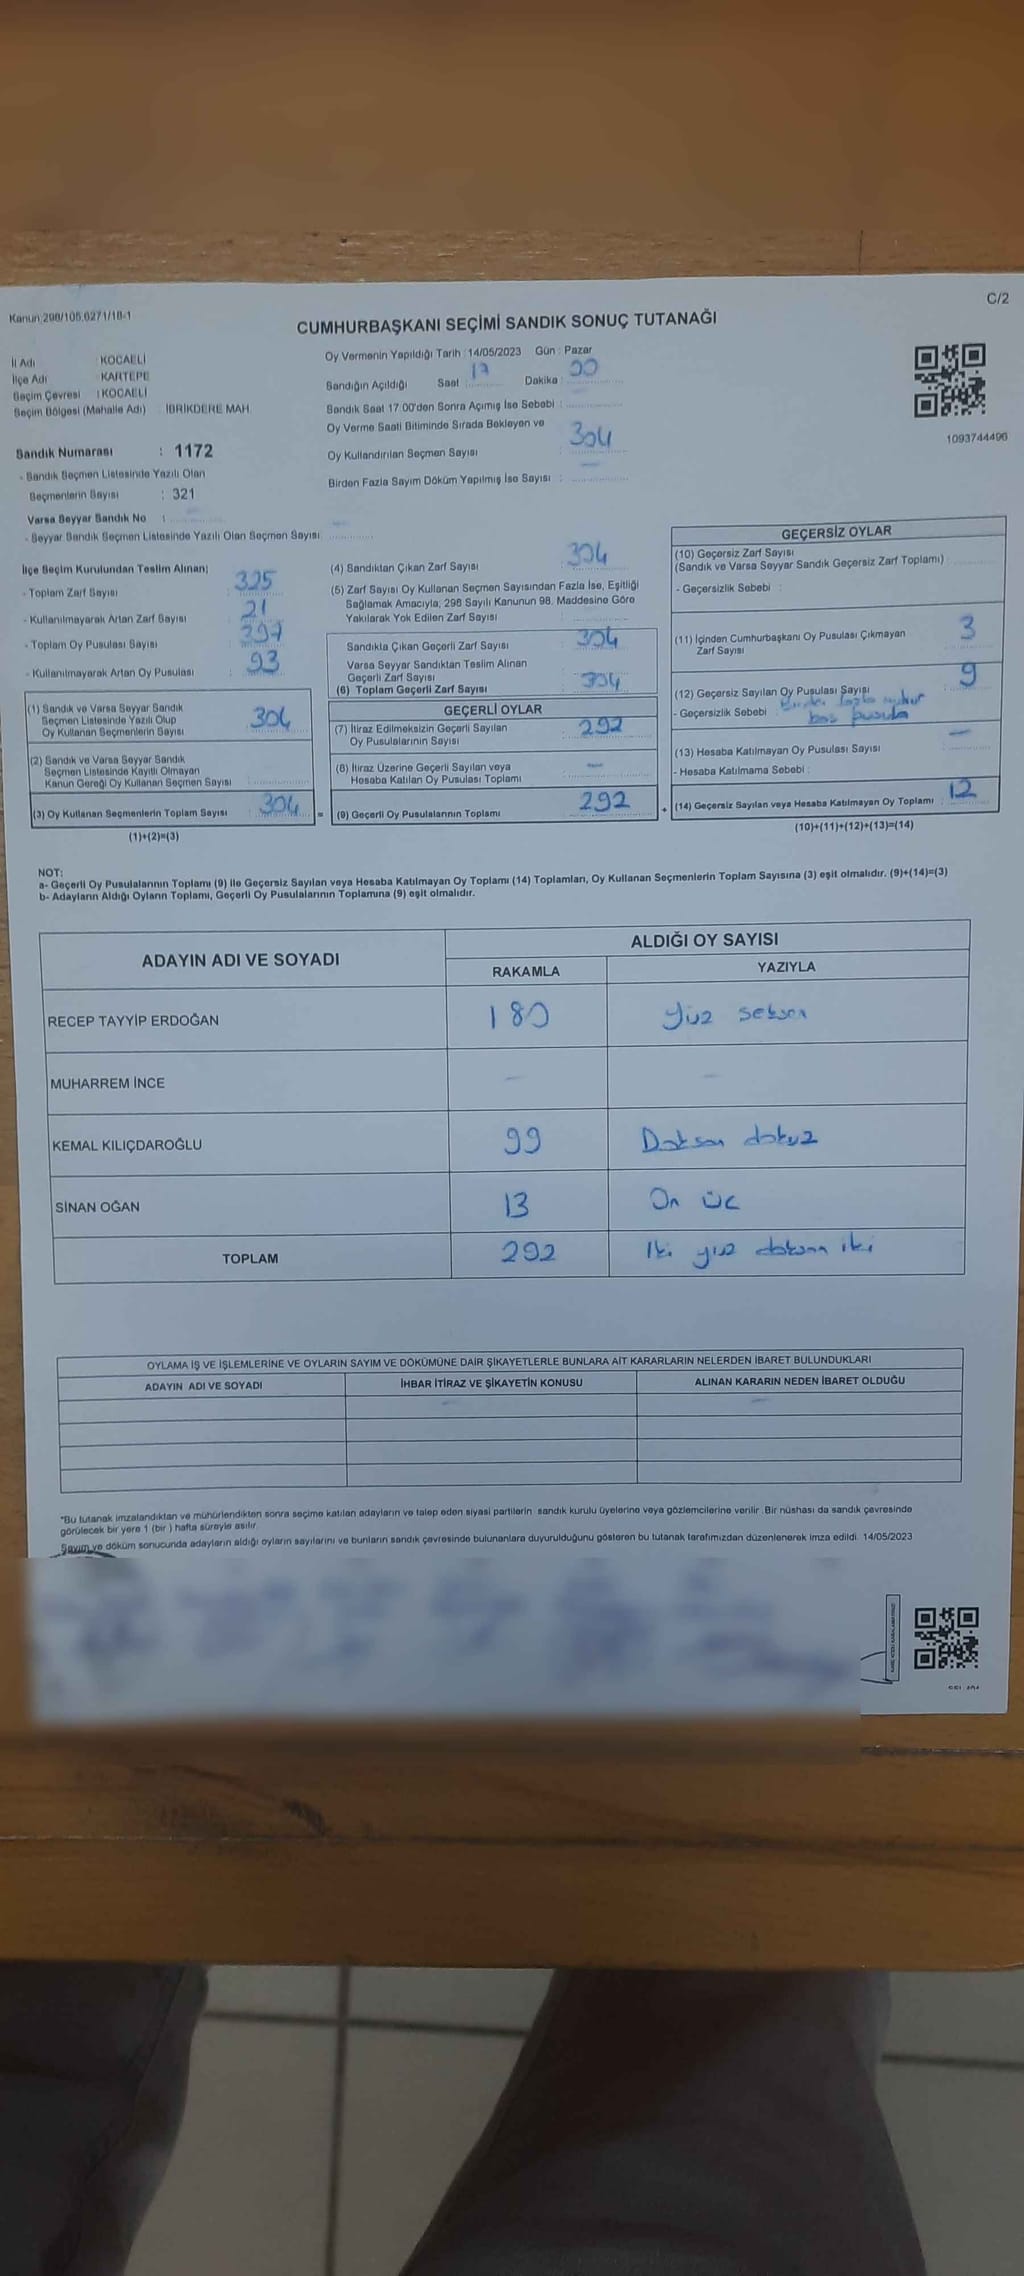 Kanun:298/105,6271/18-1
C/2
CUMHURBAŞKANI SEÇİMİ SANDIK SONUÇ TUTANAĞI
İl Adı : KOCAELİ
İlçe Adı : KARTEPE
Seçim Çevresi : KOCAELİ
Seçim Bölgesi (Mahalle Adı) : İBRİKDERE MAH.
Sandık Numarası : 1172
- Sandık Seçmen Listesinde Yazılı Olan
Seçmenlerin Sayısı : 321
Varsa Seyyar Sandık No :
- Seyyar Sandık Seçmen Listesinde Yazılı Olan Seçmen Sayısı: -
Oy Vermenin Yapıldığı Tarih : 14/05/2023 Gün : Pazar
Sandığın Açıldığı Saat : 17 Dakika : 00
Sandık Saat 17:00'den Sonra Açımış İse Sebebi :
Oy Verme Saati Bitiminde Sırada Bekleyen ve
Oy Kullandırılan Seçmen Sayısı : 304
Birden Fazla Sayım Döküm Yapılmış İse Sayısı : -
1093744496
İlçe Seçim Kurulundan Teslim Alınan;
- Toplam Zarf Sayısı : 325
- Kullanılmayarak Artan Zarf Sayısı : 21
- Toplam Oy Pusulası Sayısı : 397
- Kullanılmayarak Artan Oy Pusulası : 93
(1) Sandık ve Varsa Seyyar Sandık
Seçmen Listesinde Yazılı Olup
Oy Kullanan Seçmenlerin Sayısı : 304
(2) Sandık ve Varsa Seyyar Sandık
Seçmen Listesinde Kayıtlı Olmayan
Kanun Gereği Oy Kullanan Seçmen Sayısı :
(3) Oy Kullanan Seçmenlerin Toplam Sayısı : 304
(1)+(2)=(3)
(4) Sandıktan Çıkan Zarf Sayısı : 304
(5) Zarf Sayısı Oy Kullanan Seçmen Sayısından Fazla İse, Eşitliği
Sağlamak Amacıyla, 298 Sayılı Kanunun 98. Maddesine Göre
Yakılarak Yok Edilen Zarf Sayısı
Sandıkta Çıkan Geçerli Zarf Sayısı : 304
Varsa Seyyar Sandıktan Teslim Alınan
Geçerli Zarf Sayısı
(6) Toplam Geçerli Zarf Sayısı : 304
GEÇERLİ OYLAR
(7) İtiraz Edilmeksizin Geçerli Sayılan
Oy Pusulalarının Sayısı : 292
(8) İtiraz Üzerine Geçerli Sayılan veya
Hesaba Katılan Oy Pusulası Toplamı : -
= (9) Geçerli Oy Pusulalarının Toplamı : 292
GEÇERSİZ OYLAR
(10) Geçersiz Zarf Sayısı
(Sandık ve Varsa Seyyar Sandık Geçersiz Zarf Toplamı) :
- Geçersizlik Sebebi :
(11) İçinden Cumhurbaşkanı Oy Pusulası Çıkmayan
Zarf Sayısı : 3
(12) Geçersiz Sayılan Oy Pusulası Sayısı : 9
- Geçersizlik Sebebi : Birden fazla mühür
boş pusula
(13) Hesaba Katılmayan Oy Pusulası Sayısı : -
- Hesaba Katılmama Sebebi :
+ (14) Geçersiz Sayılan veya Hesaba Katılmayan Oy Toplamı : 12
(10)+(11)+(12)+(13)=(14)
NOT:
a- Geçerli Oy Pusulalarının Toplamı (9) ile Geçersiz Sayılan veya Hesaba Katılmayan Oy Toplamı (14) Toplamları, Oy Kullanan Seçmenlerin Toplam Sayısına (3) eşit olmalıdır. (9)+(14)=(3)
b- Adayların Aldığı Oyların Toplamı, Geçerli Oy Pusulalarının Toplamına (9) eşit olmalıdır.
ADAYIN ADI VE SOYADI
ALDIĞI OY SAYISI
RAKAMLA YAZIYLA
RECEP TAYYİP ERDOĞAN 180 yüz seksen
MUHARREM İNCE - -
KEMAL KILIÇDAROĞLU 99 Doksan dokuz
SİNAN OĞAN 13 On üç
TOPLAM 292 İki yüz doksan iki
OYLAMA İŞ VE İŞLEMLERİNE VE OYLARIN SAYIM VE DÖKÜMÜNE DAİR ŞİKAYETLERLE BUNLARA AİT KARARLARIN NELERDEN İBARET BULUNDUKLARI
ADAYIN ADI VE SOYADI İHBAR İTİRAZ VE ŞİKAYETİN KONUSU ALINAN KARARIN NEDEN İBARET OLDUĞU
- -
*Bu tutanak imzalandıktan ve mühürlendikten sonra seçime katılan adayların ve talep eden siyasi partilerin sandık kurulu üyelerine veya gözlemcilerine verilir. Bir nüshası da sandık çevresinde
görülecek bir yere 1 (bir ) hafta süreyle asılır.
Sayım ve döküm sonucunda adayların aldığı oyların sayılarını ve bunların sandık çevresinde bulunanlara duyurulduğunu gösteren bu tutanak tarafımızdan düzenlenerek imza edildi. 14/05/2023